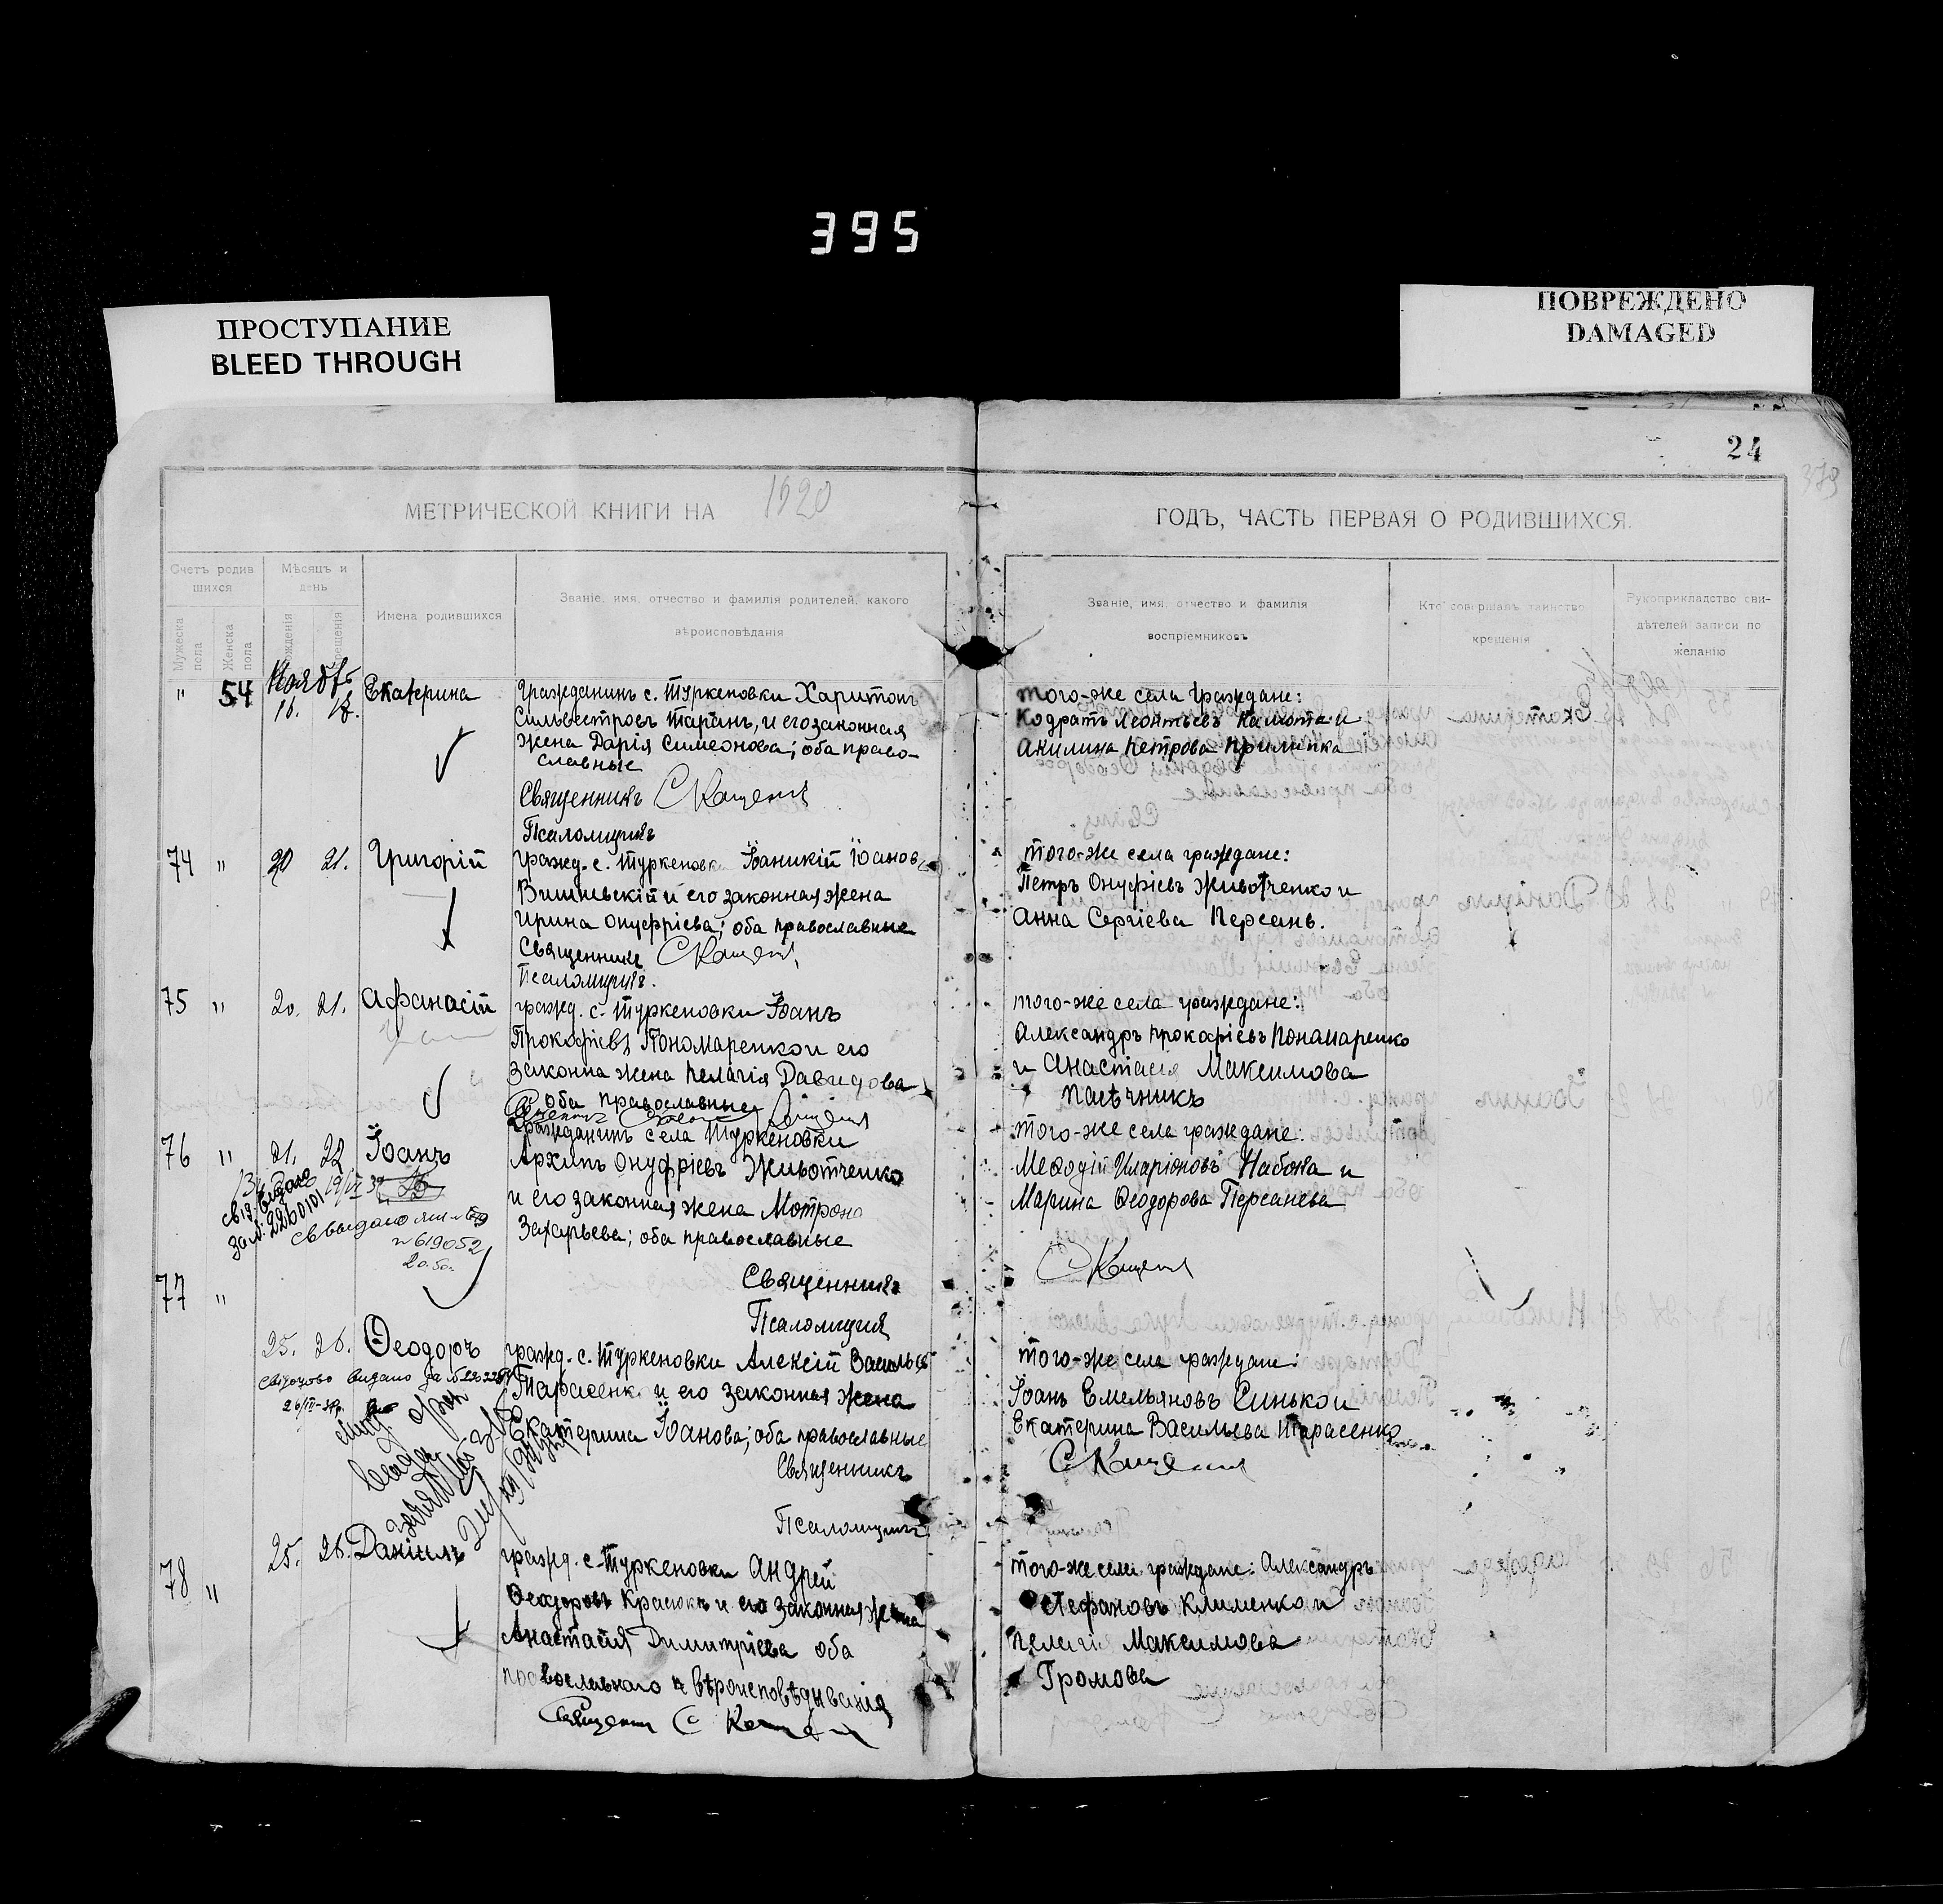 395
ПРОСТУПАНИЕ
BLEED THROUGH
ПОВРЕЖДЕНО
DAMAGED
24
379
МЕТРИЧЕСКОЙ КНИГИ НА 1920
ГОДЪ, ЧАСТЬ ПЕРВАЯ О РОДИВШИХСЯ.
Счетъ родив
шихся
Мужеска пола
Женска пола
Мѣсяцъ и
день
рожденія
крещенія
Имена родившихся
Званіе, имя, отчество и фамилія родителей, какого
вѣроисповѣданія
Званіе, имя, отчество и фамилія
воспріемниковъ
Кто совершавъ таинство
крещенія
Рукоприкладство сви-
дѣтелей записи по
желанію
Ноябрь
" 54 16. 18. Екатерина
Гражданинъ с. Туркеновки Харитонъ
Сильвестровъ Таранъ, и его законная
жена Дарія Симеонова; оба право-
славные
Священникъ
Псаломщикъ
того-же села граждане:
Кодратъ Леонтьевъ Камота и
Акилина Петрова Прилипка
74 " 20 21. Григорій
гражд. с. Туркеновки Іоаникій Іоанов
Вишневскій и его законная жена
Ирина Онуфріева; оба православные
Священникъ
Псаломщикъ.
того-же села граждане:
Петръ Онуфріевъ Животченко и
Анна Сергіева Персань.
75 " 20. 21. Афанасій
гражд. с. Туркеновки Іоанъ
Прокофіевъ Пономаренко и его
законна жена Пелагія Давидова
оба православные
того-же села граждане:
Александръ Прокофіевъ Понамаренко
и Анастасія Максимова
Пасѣчникъ
76 " 21. 22 Іоанъ
Гражданинъ села Туркеновки
Архипъ Онуфріевъ Животченко
и его законная жена Мотрона
Захарьева; оба православные
Священникъ
Псаломщик
того-же села граждане:
Меѳодій Иларіоновъ Набока и
Марина Ѳеодорова Персанева
№ 619052
77 "
25. 26. Ѳеодоръ
гражд. с. Туркеновки Алексій Василь
Тарасенк и его законная жена
Екатерина Іоанова; оба православные
Священникъ
Псаломщикъ
того-же села граждане:
Іоанъ Емельяновъ Синько и
Екатерина Васильева Тарасенко
78 "
25. 26. Даніилъ
гражд. с. Туркеновки Андрей
Ѳеодоровъ Красюкъ и его законная жена
Анастасія Димитріева оба
православнаго вѣроисповѣдыванія
того-же села граждане: Александръ
Стефановъ Клименко и
Пелагія Максимова
Громова